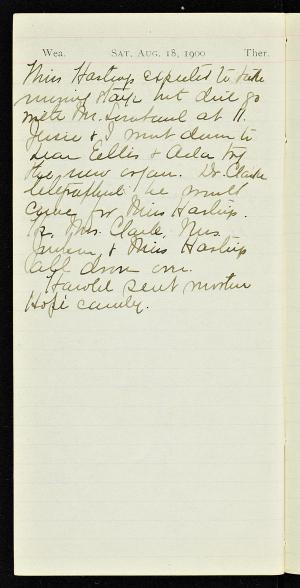 Wea. SAT. AUG. 18, 1900 Ther.
Miss Hastings expected to take
morning stage but did go
with Mr. at 11.
Jessie & I went down to
hear Ellis & Ada try
the new organ. Dr. Clarke
telegraphed he would
come for Miss Hastings.
Dr. Mrs. Clarke, Mrs.
& Miss Hastings
all drove over.
Harold sent mother
Hope candy.